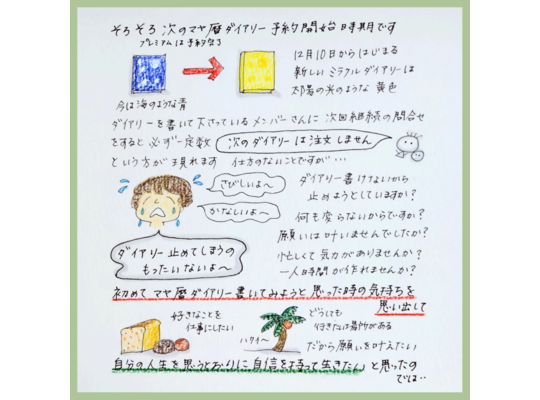 そろそろ次のマヤ暦ダイアリー予約開始時期です
プレミアムは予約終了
12月10日からはじまる
新しいミラクルダイアリーは
太陽の光のような黄色
今は海のような青
ダイアリーを書いて下さっているメンバーさんに次回継続の問合せ
をすると必ず一定数
次のダイアリーは注文しません
という方が現れます 仕方のないことですが…
さびしいよ〜
かなしいよ〜
ダイアリー止めてしまうの
もったいないよ〜
ダイアリー書けないから
止めようとしていますか?
何も変らないからですか?
願いは叶いませんでしたか?
忙しくて気力がありませんか?
一人時間が作れませんか?
初めてマヤ暦ダイアリー書いてみようと思った時の気持ちを
思い出して
好きなことを
仕事にしたい
ハワイ〜
どうしても
行きたい場所がある
だから願いを叶えたい
自分の人生を思うとおりに自信を持って生きたい と思ったの
では‥